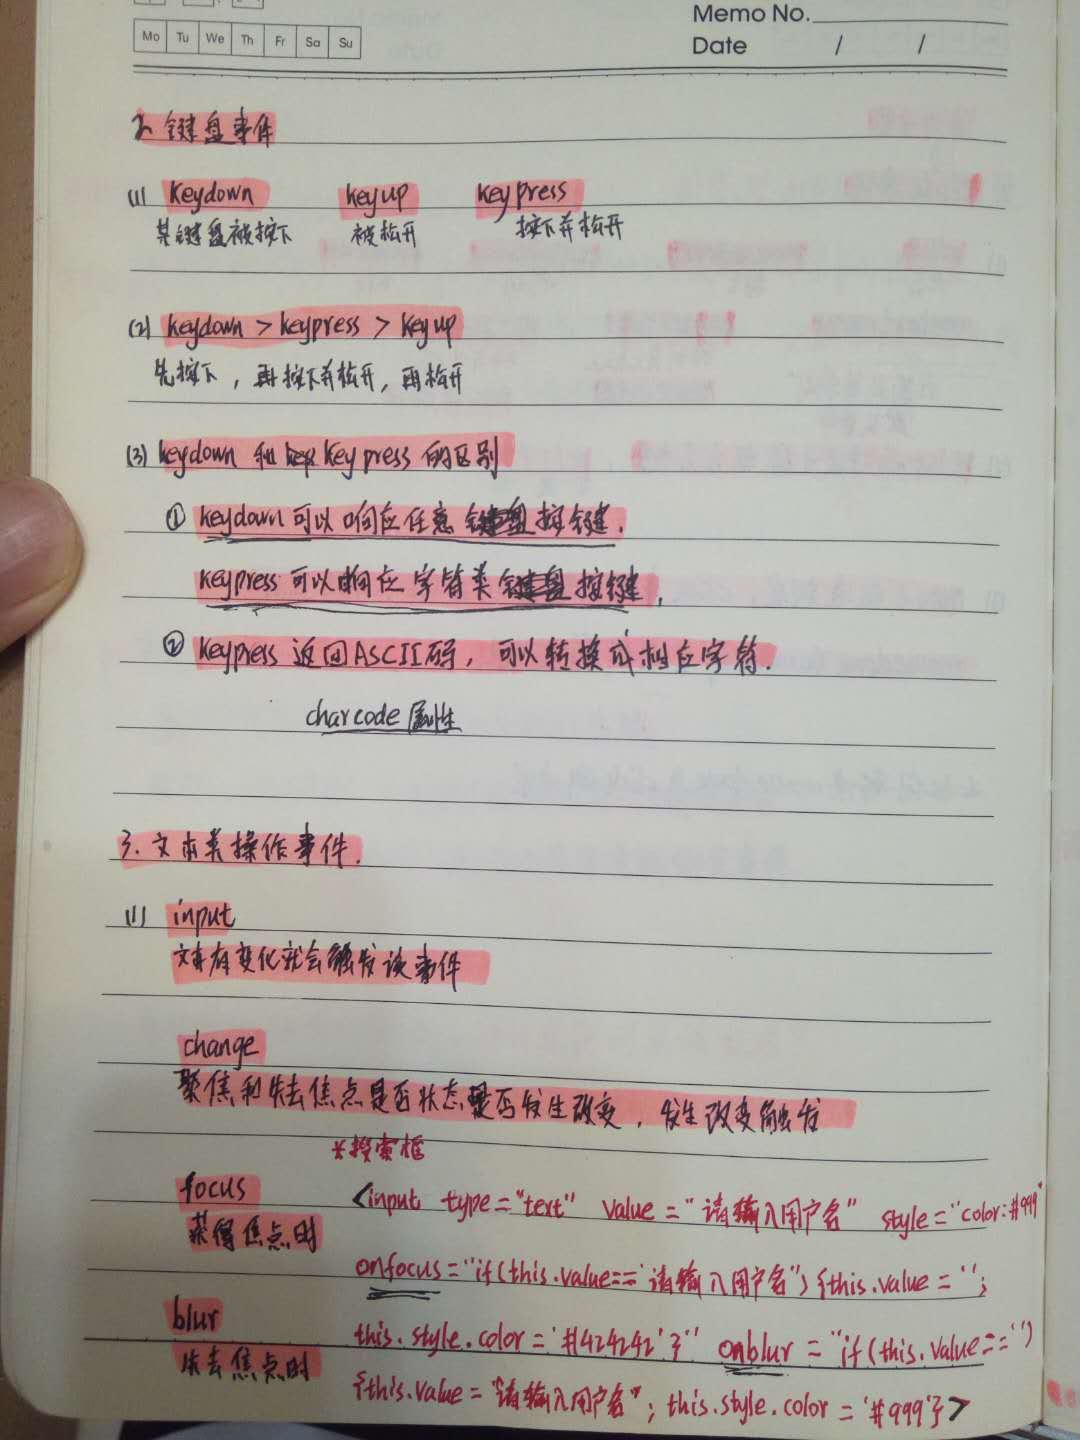 Memo No.
Mo Tu We Th Fr Sa Su
Date / /
2. 键盘事件
(1) keydown keyup keypress
某键盘被按下 被松开 按下并松开
(2) keydown > keypress > keyup
先按下，再按下并松开，再松开
(3) keydown 和 keypress 的区别
① keydown 可以响应任意键盘按键.
keypress 可以响应字符类键盘按键.
② keypress 返回ASCII码，可以转换成相应字符.
charcode 属性
3. 文本类操作事件.
(1) input
文本有变化就会触发该事件
change
聚焦和失去焦点是否状态是否发生改变，发生改变触发
*搜索框
focus <input type="text" value="请输入用户名" style="color:#999"
获得焦点时
onfocus="if(this.value=='请输入用户名"){this.value='';
blur
this.style.color='#424242'}" onblur="if(this.value=='')
失去焦点时
{this.value="请输入用户名"; this.style.color='#999'}>